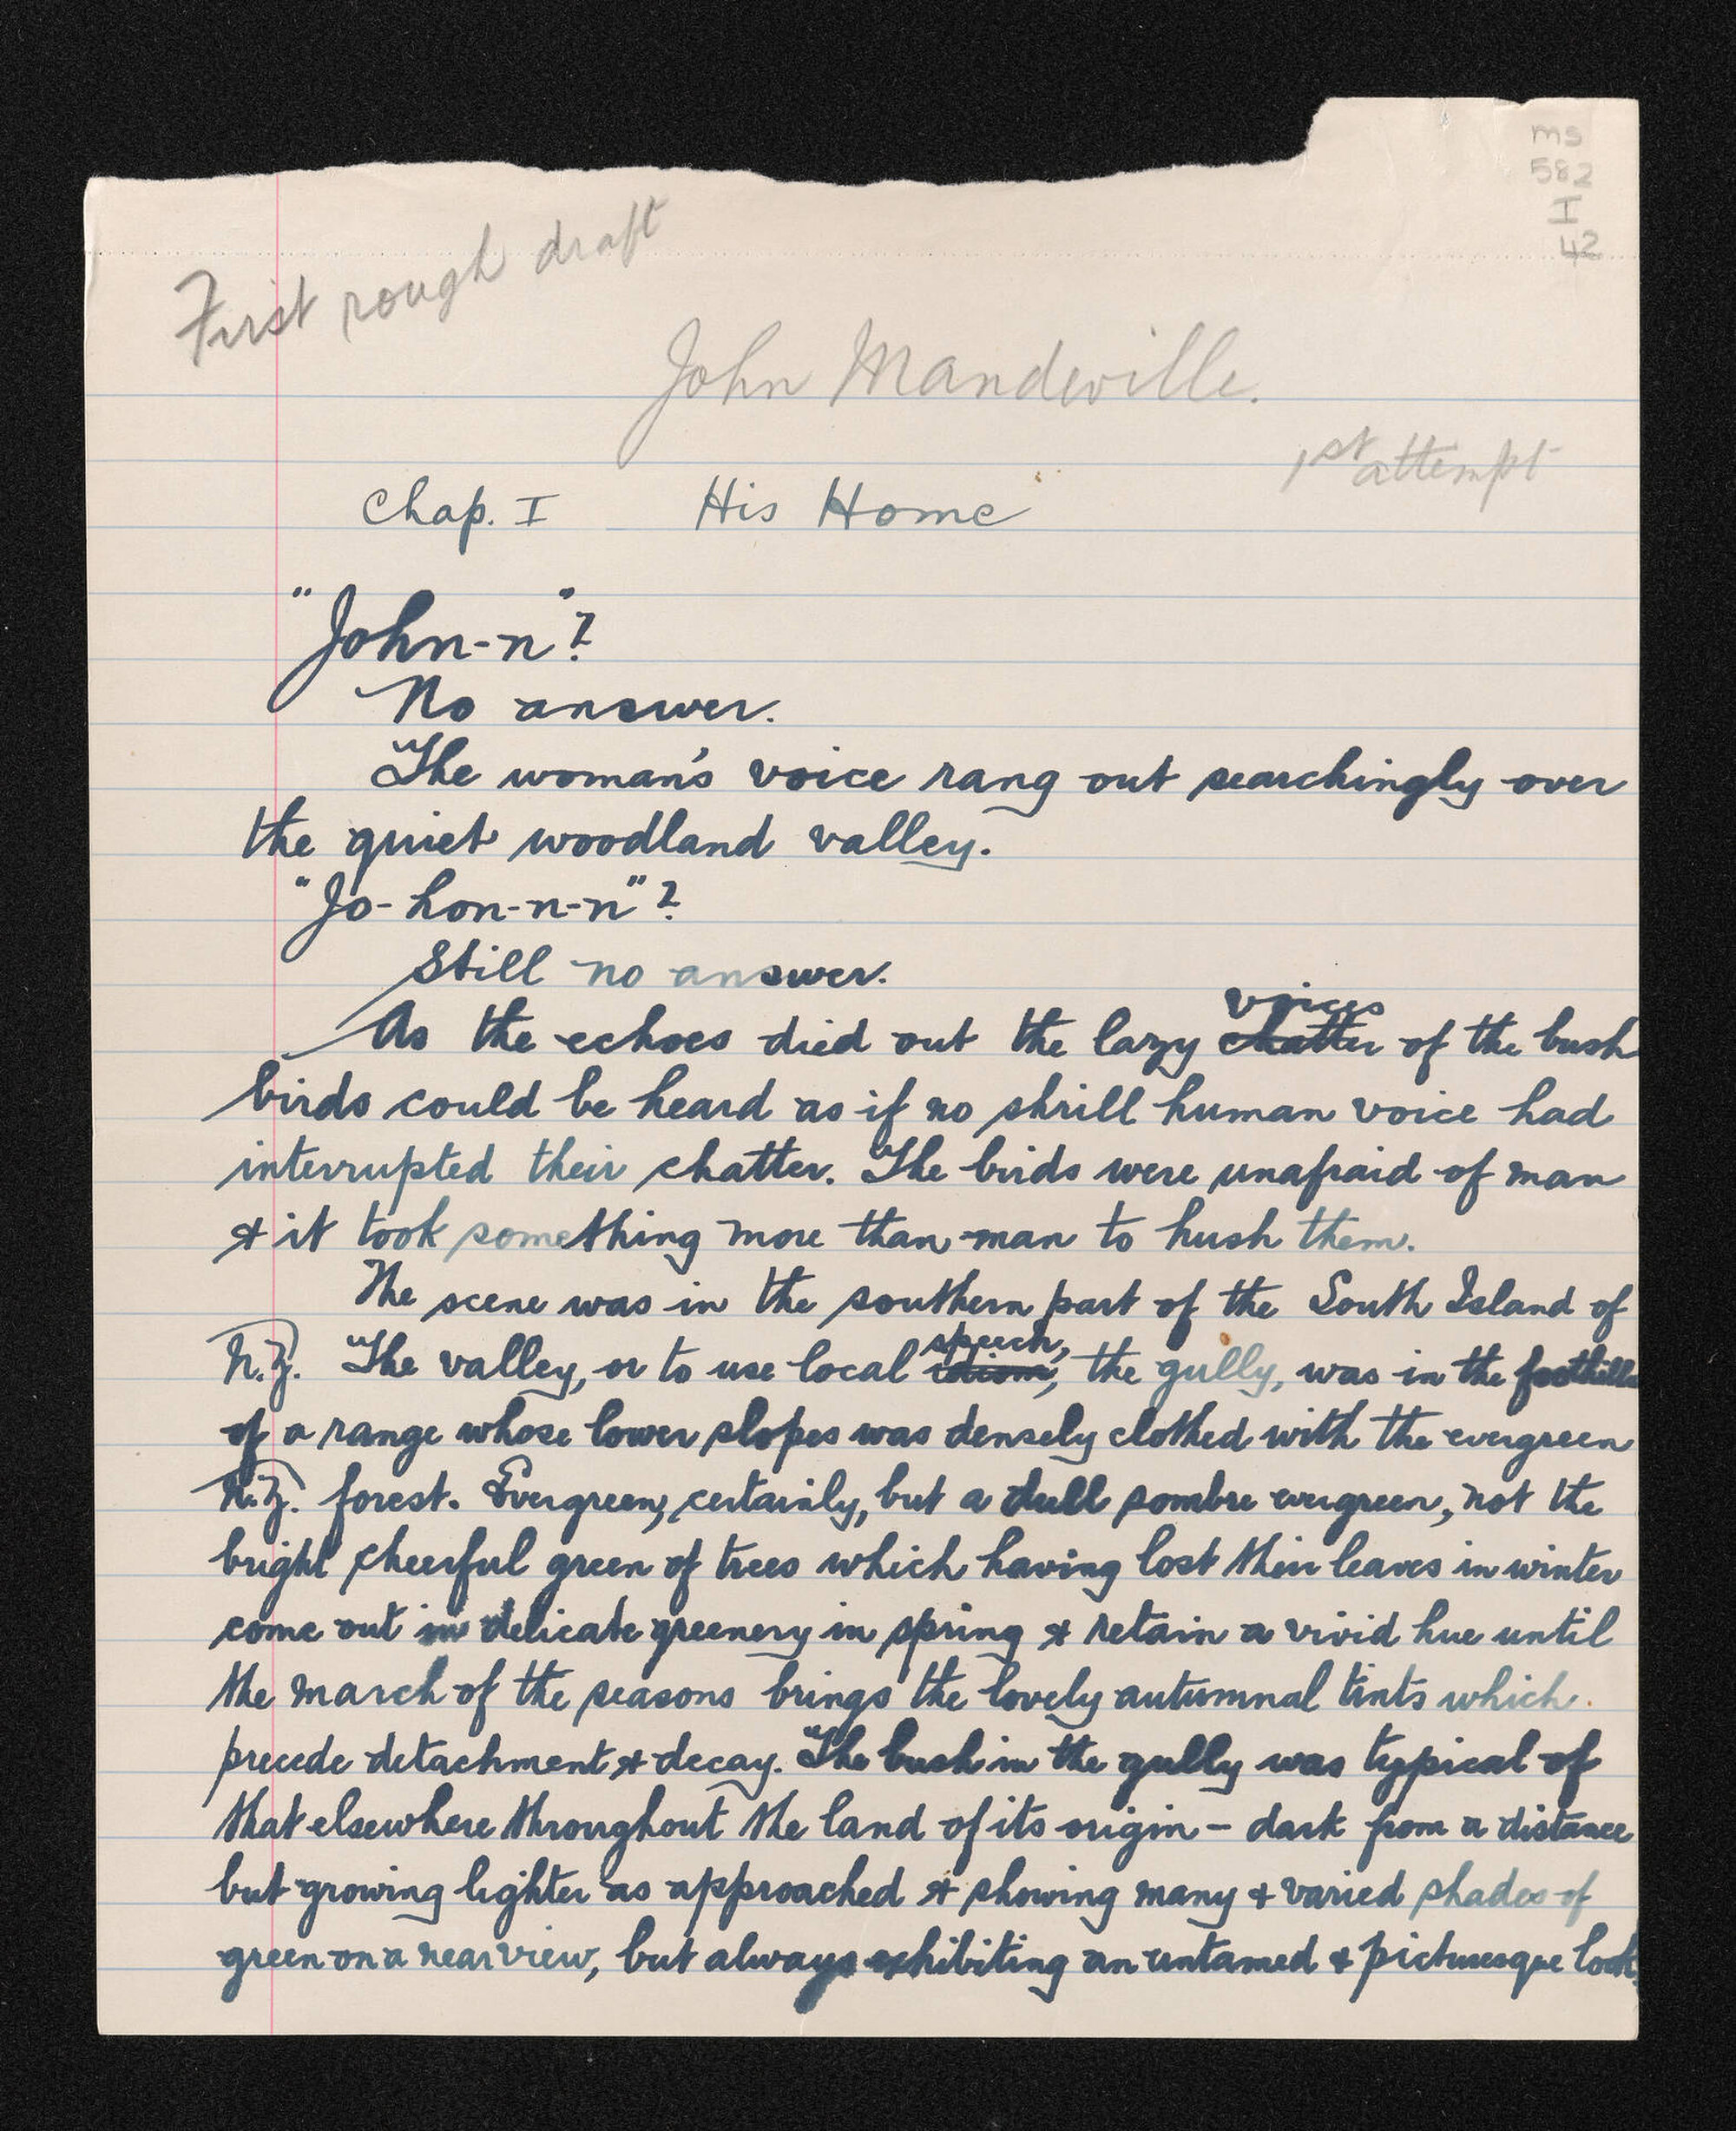 ms
582
I
42
First rough draft
John Mandeville.
1st attempt
Chap. I His Home
"John-n"?
No answer.
The woman's voice rang out searchingly over
the quiet woodland valley.
"Jo-hon-n-n"?
Still no answer.
voices
As the echoes died out the lazy chatter of the bush
birds could be heard as if no shrill human voice had
interrupted their chatter. The birds were unafraid of man
& it took something more than man to hush them.
The scene was in the southern part of the South Island of
speech,
N.Z. The valley, or to use local idiom, the gully, was in the foothills
of a range whose lower slopes was densely clothed with the evergreen
N.Z. forest. Evergreen, certainly, but a dull sombre evergreen, not the
bright cheerful green of trees which having lost their leaves in winter
come out in delicate greenery in spring & retain a vivid hue until
the march of the seasons brings the lovely autumnal tints which
precede detachment & decay. The bush in the gully was typical of
that elsewhere throughout the land of its origin - dark from a distance
but growing lighter as approached & showing many & varied shades of
green on a near view, but always exhibiting an untamed & picturesque look.